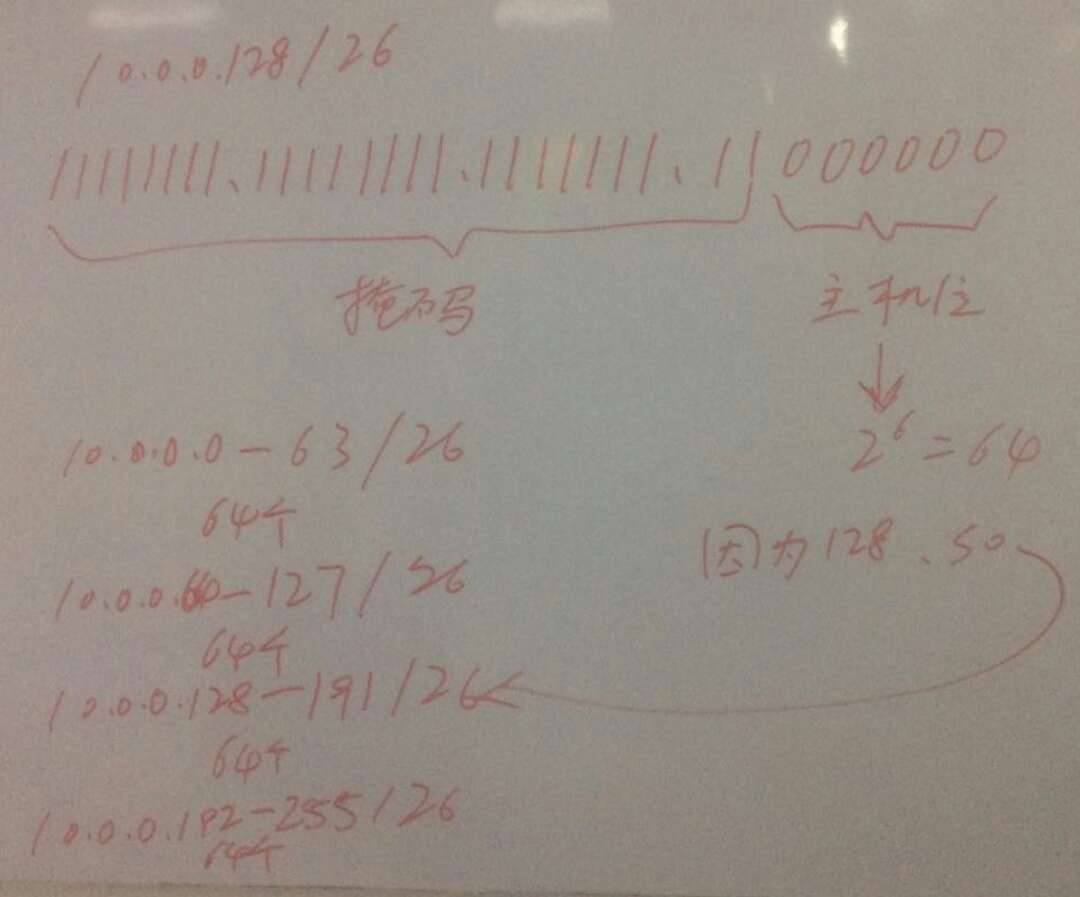 10.0.0.128/26
11111111.11111111.11111111.11000000
掩码
主机位
2⁶=64
10.0.0.0-63/26
64个
因为128、so
10.0.0.64-127/26
64个
10.0.0.128-191/26
64个
10.0.0.192-255/26
64个